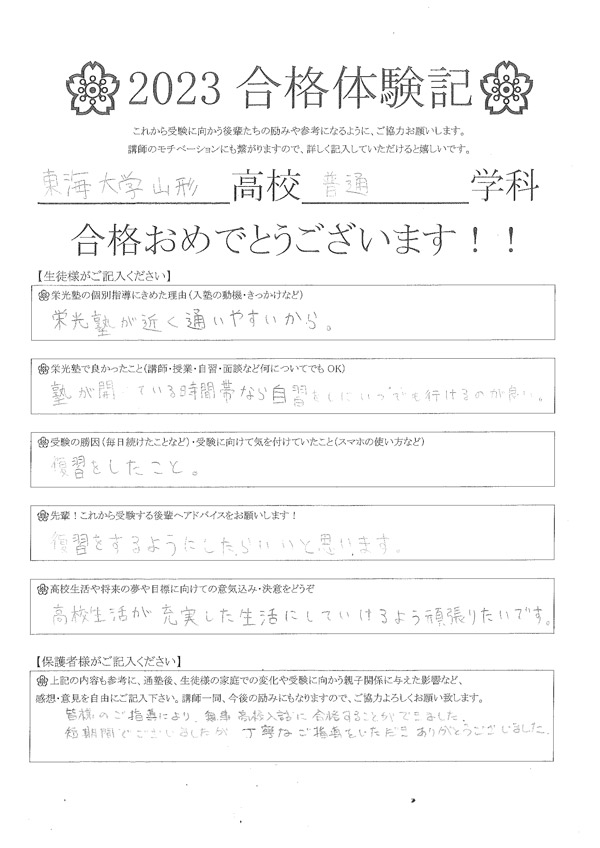 2023 合格体験記
これから受験に向かう後輩たちの励みや参考になるように、ご協力お願いします。
講師のモチベーションにも繋がりますので、詳しく記入していただけると嬉しいです。
東海大学山形 高校 普通 学科
合格おめでとうございます！！
【生徒様がご記入ください】
栄光塾の個別指導にきめた理由(入塾の動機・きっかけなど)
栄光塾が近く通いやすいから。
栄光塾で良かったこと(講師・授業・自習・面談など何についてでも OK)
塾が開いている時間帯なら自習をしにいつでも行けるのが良い。
受験の勝因(毎日続けたことなど)・受験に向けて気を付けていたこと(スマホの使い方など)
復習をしたこと。
先輩！これから受験する後輩へアドバイスをお願いします！
復習をするようにしたらいいと思います。
高校生活や将来の夢や目標に向けての意気込み・決意をどうぞ
高校生活が充実した生活にしていけるよう頑張りたいです。
【保護者様がご記入ください】
上記の内容も参考に、通塾後、生徒様の家庭での変化や受験に向かう親子関係に与えた影響など、
感想・意見を自由にご記入下さい。講師一同、今後の励みにもなりますので、ご協力よろしくお願い致します。
皆様のご指導により、無事高校入試に合格することができました。
短期間でございましたが 丁寧なご指導をいただき ありがとうございました。